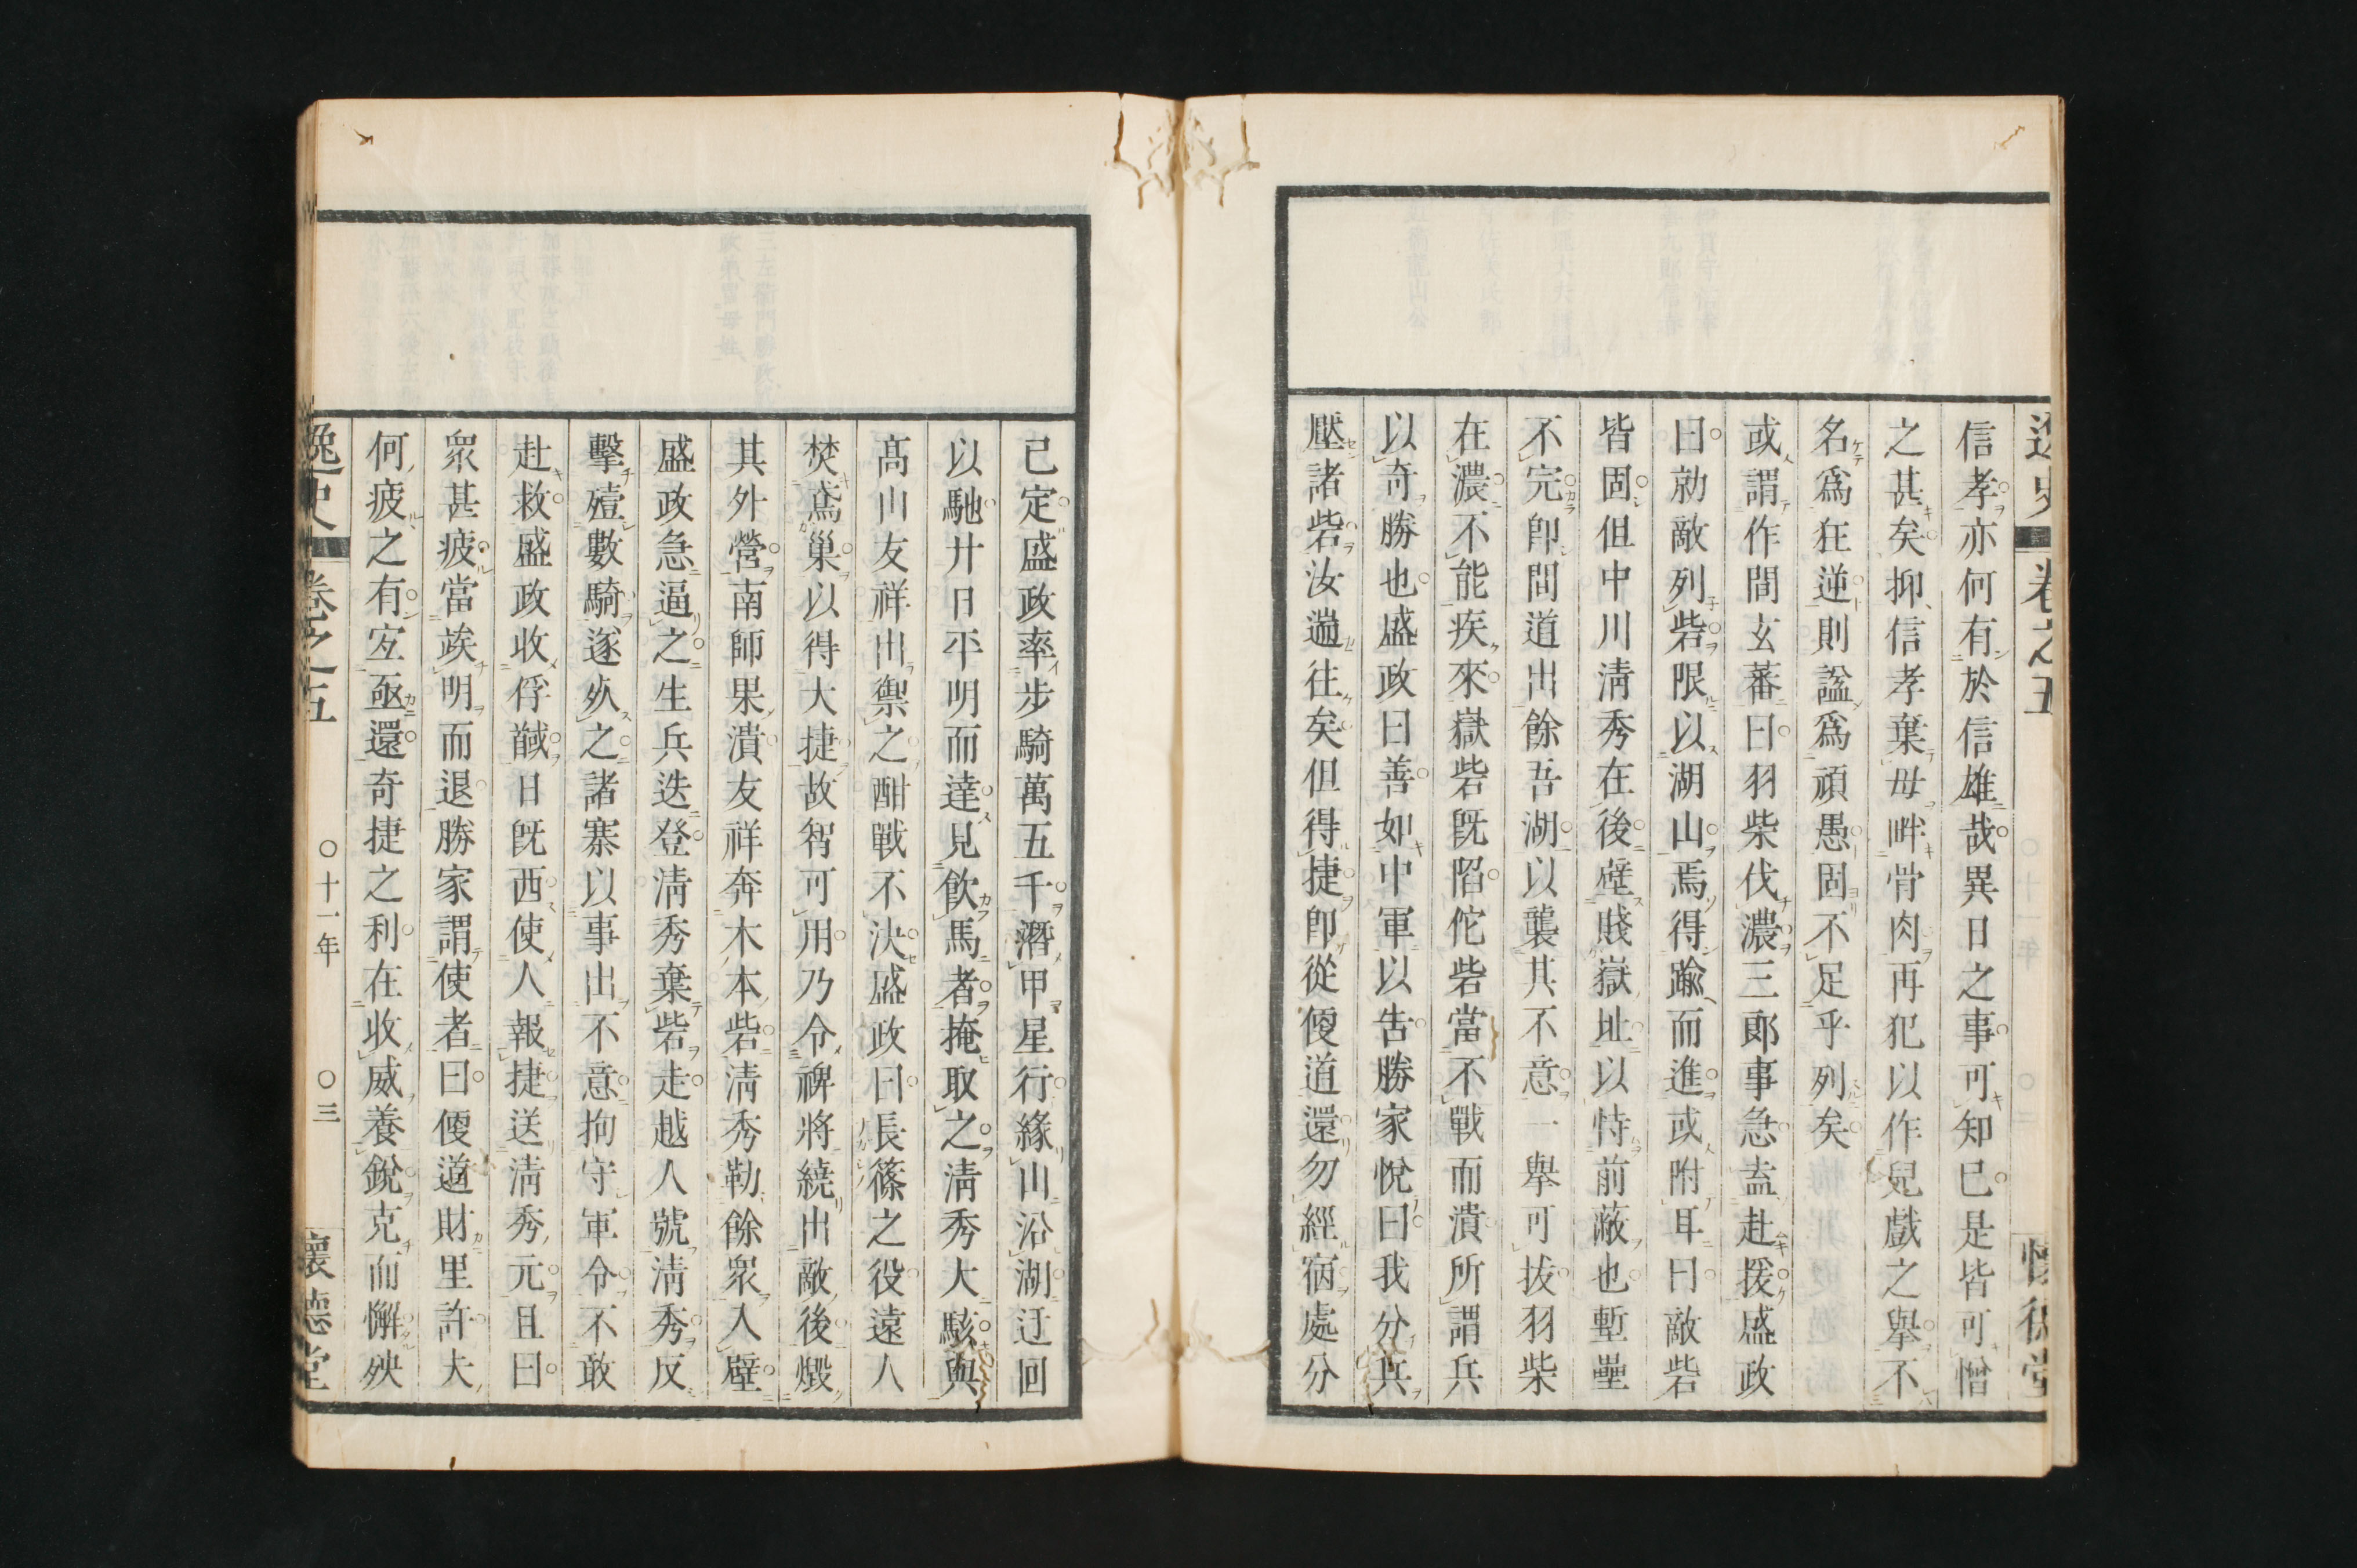 逸史 卷之五 懷德堂
信孝亦何有於信雄哉異日之事可知已是皆可憎
之甚矣抑信孝棄母畔骨肉再犯以作兒戲之舉不
名爲狂逆則諡爲頑愚固不足乎列矣
或謂作間玄蕃曰羽柴伐濃三郎事急盍赴援盛政
曰勍敵列砦限以湖山焉得踰而進或附耳曰敵砦
皆固但中川清秀在後壁賤嶽址以恃前蔽也塹壘
不完卽間道出餘吾湖以襲其不意一舉可拔羽柴
在濃不能疾來嶽砦既陷佗砦當不戰而潰所謂兵
以奇勝也盛政曰善如中軍以告勝家悅曰我分兵
壓諸砦汝遄往矣但得捷卽從便道還勿經宿處分
已定盛政率步騎萬五千潛甲星行緣山沿湖迂回
以馳廿日平明而達見飮馬者掩取之淸秀大駭與
髙山友祥出禦之酣戰不決盛政曰長篠之役遠人
焚鳶巢以得大捷故智可用乃令裨將繞出敵後燬
其外營南師果潰友祥奔木本砦淸秀勒餘衆入壁
盛政急逼之生兵迭登淸秀棄砦走越人號淸秀反
擊殪數騎遂死之諸寨以事出不意拘守軍令不敢
赴救盛政收俘馘日既西使人報捷送淸秀元且曰
衆甚疲當竢明而退勝家謂使者曰便道財里許大
何疲之有宐亟還奇捷之利在收威養銳克而懈殃
逸史 卷之五 〇十一年 〇三 懷德堂